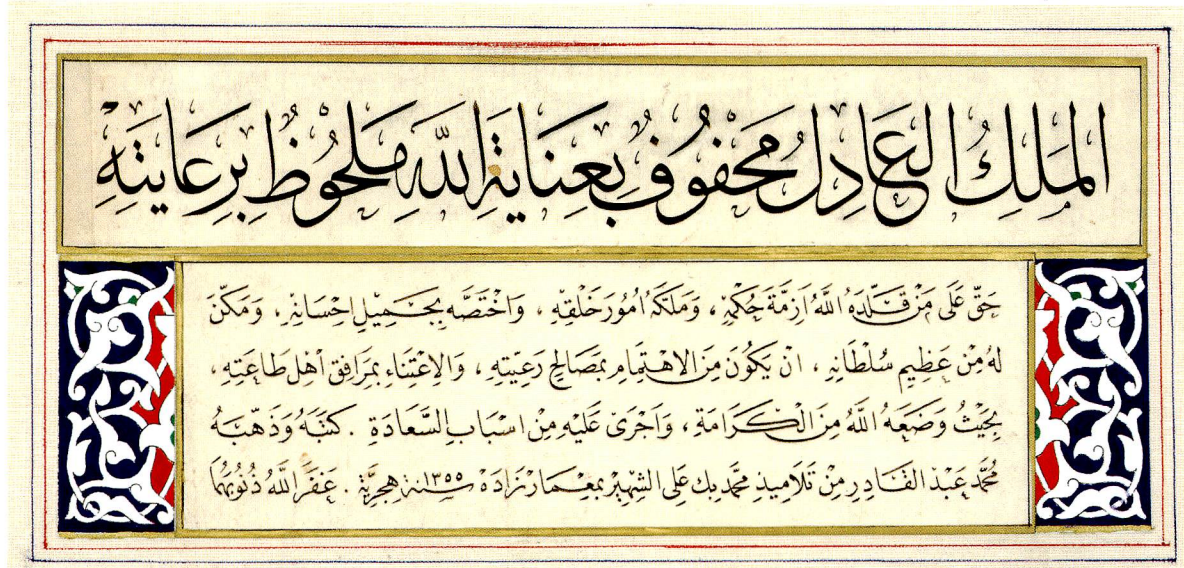 المَلِكُ العَادِلُ مَحْفُوفٌ بِعِنَايَةِ اللهِ مَلحُوْظٌ بِرِعَايَتِهِ
حَقّ عَلَى مَنْ قَلّدَهُ اللهُ اَزِمَّةَ حُكْمِهِ ، وَمَلكَهُ اُمُورَ خَلْقِهِ ، وَاخْتَصَّه بِجَمِيْلِ اِحْسَانِهِ ، وَمَكّنَ
لهُ مِنْ عَظِيمِ سُلْطَانِهِ ، انْ يَكُونَ مِنَ الاهْتِمَامِ بمَصَالِحِ رَعِيَتِهِ ، وَالاِعْتِنَاءِ بمَرَافِقِ اَهْلِ طَاعَتِهِ ،
بحَيْثُ وَضَعَهُ اللهُ مِنَ الْكَرَامَةِ ، وَاَجْرَى عَلَيْهِ مِنْ اسْبَابِ السَّعَادَةِ . كتبَهُ وَذَهّبَهُ
مُحَمَّد عَبْدُ القَادِرِ مِنْ تَلَامِيذِ محمَّد بك عَلِي الشهِيْر بمعْمَار زَادَهْ سنة ١٣٥٥ هِجريّة . غفَرَ اللهُ ذُنُوبهُمَا